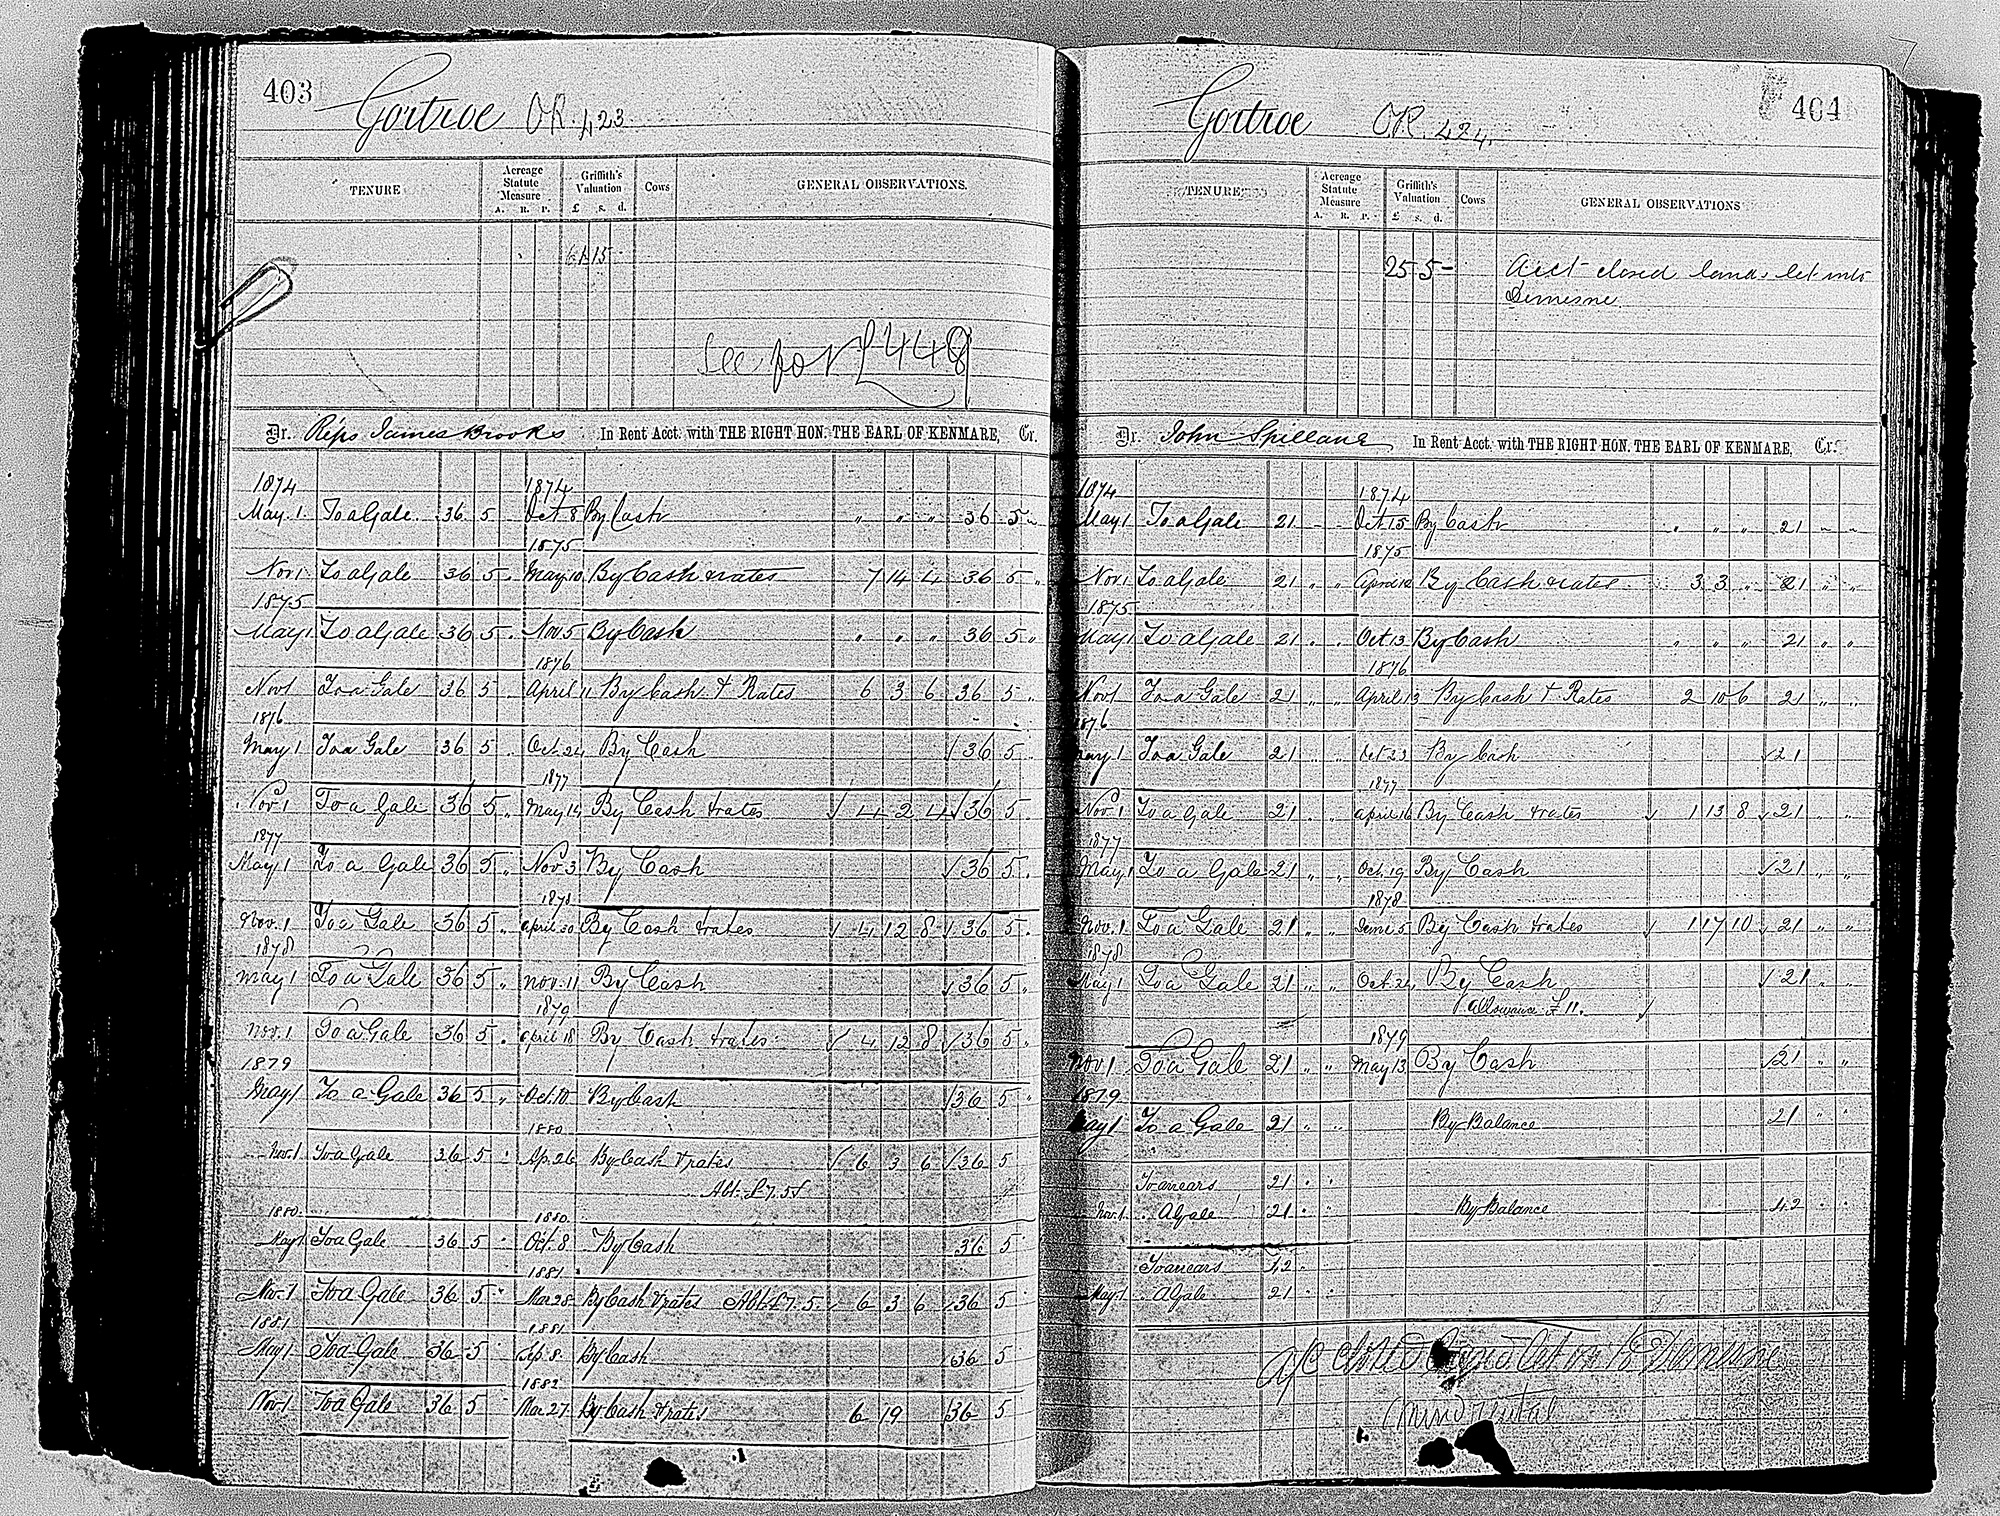 403
Gortroe OR. 423
TENURE
Acreage Statute Measure
A. R. P.
Griffith's Valuation
£ s. d.
Cows
GENERAL OBSERVATIONS.
61 15
See for £448
Dr. Reps James Brooks In Rent Acct. with THE RIGHT HON. THE EARL OF KENMARE, Cr.
1874 1874
May 1 To a Gale 36 5 Oct 8 By Cash " " " 36 5 "
1875
Nov 1 To a Gale 36 5 . May 10 By Cash & rates 7 14 4 36 5 "
1875
May 1 To a Gale 36 5 . Nov 5 By Cash " " " 36 5 "
1876
Nov 1 To a Gale 36 5 . April 11 By Cash & Rates 6 3 6 36 5 .
1876
May 1 To a Gale 36 5 . Oct 24 By Cash √ 36 5 .
1877
Nov. 1 To a Gale 36 5 . May 14 By Cash & rates √ 4 2 4 √ 36 5 .
1877
May 1 To a Gale 36 5 . Nov 3 By Cash √ 36 5 .
1878
Nov. 1 To a Gale 36 5 . April 30 By Cash & rates √ 4 12 8 √ 36 5 .
1878
May 1 To a Gale 36 5 . Nov. 11 By Cash √ 36 5 .
1879
Nov. 1 To a Gale 36 5 . April 18 By Cash & rates √ 4 12 8 √ 36 5 .
1879
May 1 To a Gale 36 5 " Oct. 10 By Cash √ 36 5 "
1880
Nov. 1 To a Gale 36 5 : Ap. 26 By Cash & rates √ 6 3 6 √ 36 5
Abt. £7.5/
1880 1880
May 1 To a Gale 36 5 Oct. 8 By Cash 36 5
1881
Nov. 1 To a Gale 36 5 " Mar 28 By Cash & rates Abt. £7.5. √ 6 3 6 √ 36 5
1881 1881
May 1 To a Gale 36 5 Sep. 8. By Cash √ 36 5
1882
Nov 1 To a Gale 36 5 Mar 27 By Cash & rates 6 19 √ 36 5
404
Gortroe OR. 424.
TENURE
Acreage Statute Measure
A. R. P.
Griffith's Valuation
£ s. d.
Cows
GENERAL OBSERVATIONS
25 5 - Acct closed lands let into
Demesne
Dr. John Spillane In Rent Acct. with THE RIGHT HON. THE EARL OF KENMARE, Cr.
1874 1874
May 1 To a Gale 21 - - Oct. 15 By Cash " " " 21 " "
1875
Nov 1 To a Gale 21 " " April 12 By Cash & rates 3 3 " 21 " "
1875
May 1 To a Gale 21 " " Oct 13 By Cash " " " 21 " "
1876
Nov 1 To a Gale 21 " " April 13 By Cash & Rates 2 10 6 21 " "
1876
May 1 To a Gale 21 " " Oct 23 By Cash √ 21
1877
Nov. 1 To a Gale 21 " " April 16 By Cash & rates √ 1 13 8 √ 21 " "
1877
May 1 To a Gale 21 " " Oct. 19 By Cash √ 21 " "
1878
Nov. 1 To a Gale 21 " " June 5 By Cash & rates √ 1 17 10 √ 21 " "
1878
May 1 To a Gale 21 " " Oct. 24 By Cash √ 21 " "
√ allowance £11. √
1879
Nov 1 To a Gale 21 " " May 13 By Cash √ 21 " "
1879
May 1 To a Gale 21 " " By Balance 21 " "
To arrears 21 " "
Nov. 1 " A Gale 21 " " By Balance 42 " "
To arrears 42 "
May 1 " A Gale 21 " "
a/c closed let into Demesne
rental